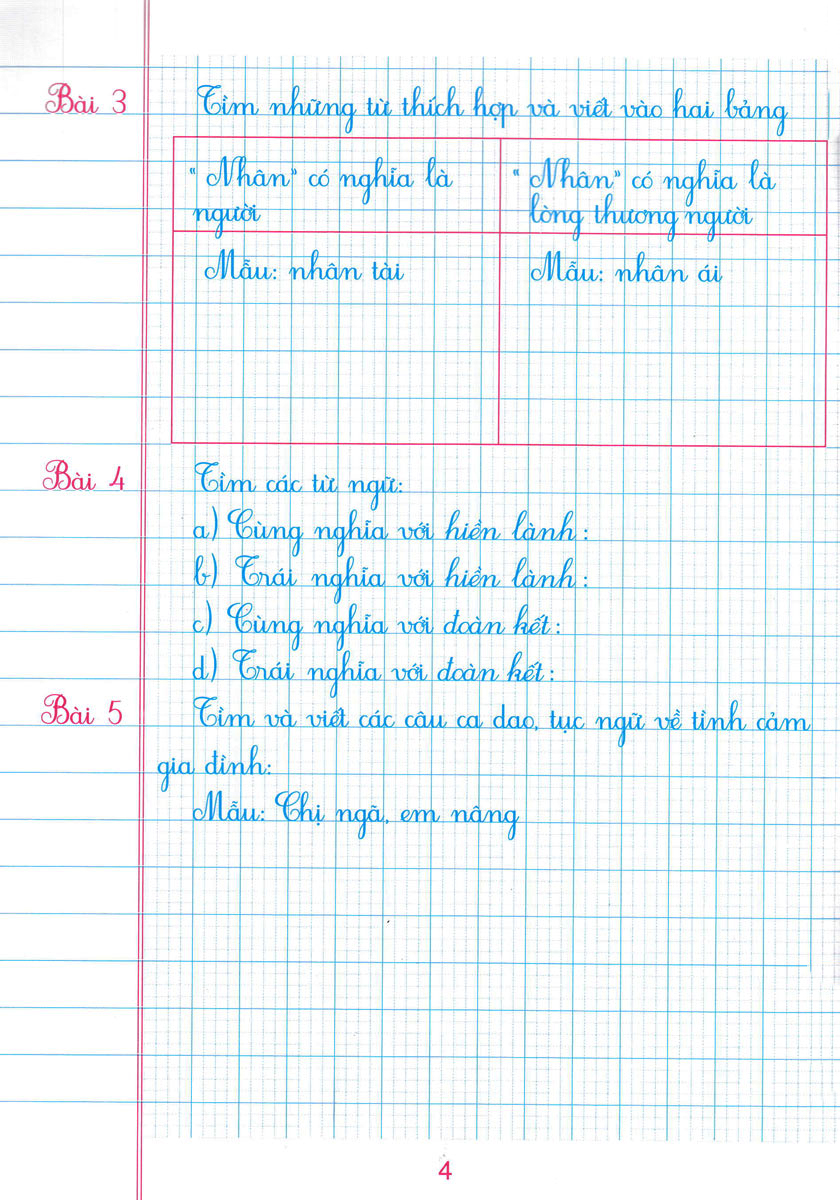 Bài 3 Tìm những từ thích hợp và viết vào hai bảng
“Nhân” có nghĩa là
người
“Nhân” có nghĩa là
lòng thương người
Mẫu: nhân tài
Mẫu: nhân ái
Bài 4 Tìm các từ ngữ:
a) Cùng nghĩa với hiền lành:
b) Trái nghĩa với hiền lành:
c) Cùng nghĩa với đoàn kết:
d) Trái nghĩa với đoàn kết:
Bài 5 Tìm và viết các câu ca dao, tục ngữ về tình cảm
gia đình:
Mẫu: Chị ngã, em nâng
4